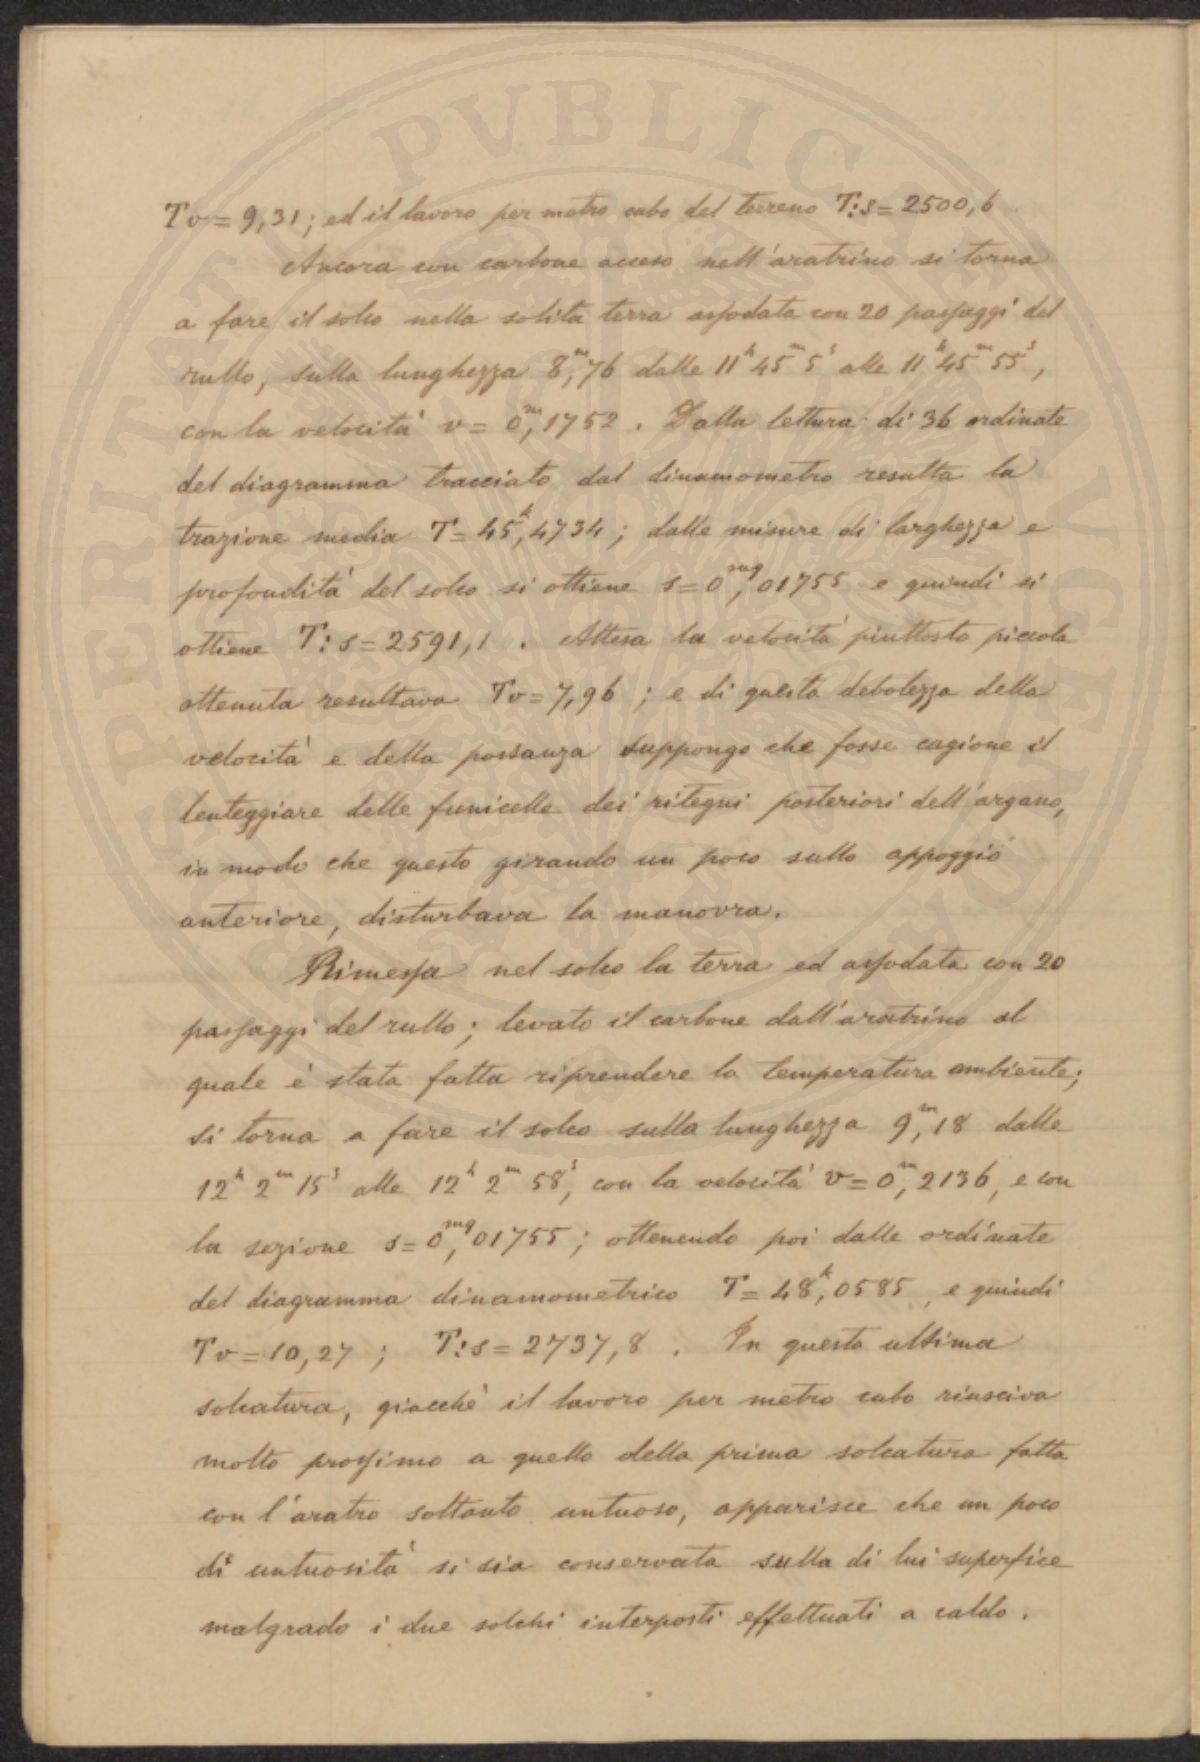 Tv = 9,31; ed il lavoro per metro cubo del terreno T:s = 2500,6
Ancora con carbone acceso nell'aratrino si torna
a fare il solco nella solita terra assodata con 20 passaggi del
rullo, sulla lunghezza 8ᵐ,76 dalle 11ʰ 45ᵐ 5ˢ alle 11ʰ 45ᵐ 55ˢ,
con la velocità v = 0ᵐ,1752. Dalla lettura di 36 ordinate
del diagramma tracciato dal dinamometro resulta la
trazione media T = 45ᵏ,4734; dalle misure di larghezza e
profondità del solco si ottiene s = 0ᵐᑫ,01755 e quindi si
ottiene T:s = 2591,1. Attesa la velocità piuttosto piccola
ottenuta resultava Tv = 7,96; e di questa debolezza della
velocità e della possanza suppongo che fosse cagione il
lenteggiare delle funicelle dei ritegni posteriori dell'argano,
in modo che questo girando un poco sullo appoggio
anteriore, disturbava la manovra.
Rimessa nel solco la terra ed assodata con 20
passaggi del rullo; levato il carbone dall'aratrino al
quale è stata fatta riprendere la temperatura ambiente;
si torna a fare il solco sulla lunghezza 9ᵐ,18 dalle
12ʰ 2ᵐ 15ˢ alle 12ʰ 2ᵐ 58ˢ, con la velocità v = 0ᵐ,2136, e con
la sezione s = 0ᵐᑫ,01755; ottenendo poi dalle ordinate
del diagramma dinamometrico T = 48ᵏ,0585, e quindi
Tv = 10,27; T:s = 2737,8. In questa ultima
solcatura, giacchè il lavoro per metro cubo riusciva
molto prossimo a quello della prima solcatura fatta
con l'aratro soltanto untuoso, apparisce che un poco
di untuosità si sia conservata sulla di lui superfice
malgrado i due solchi interposti effettuati a caldo.